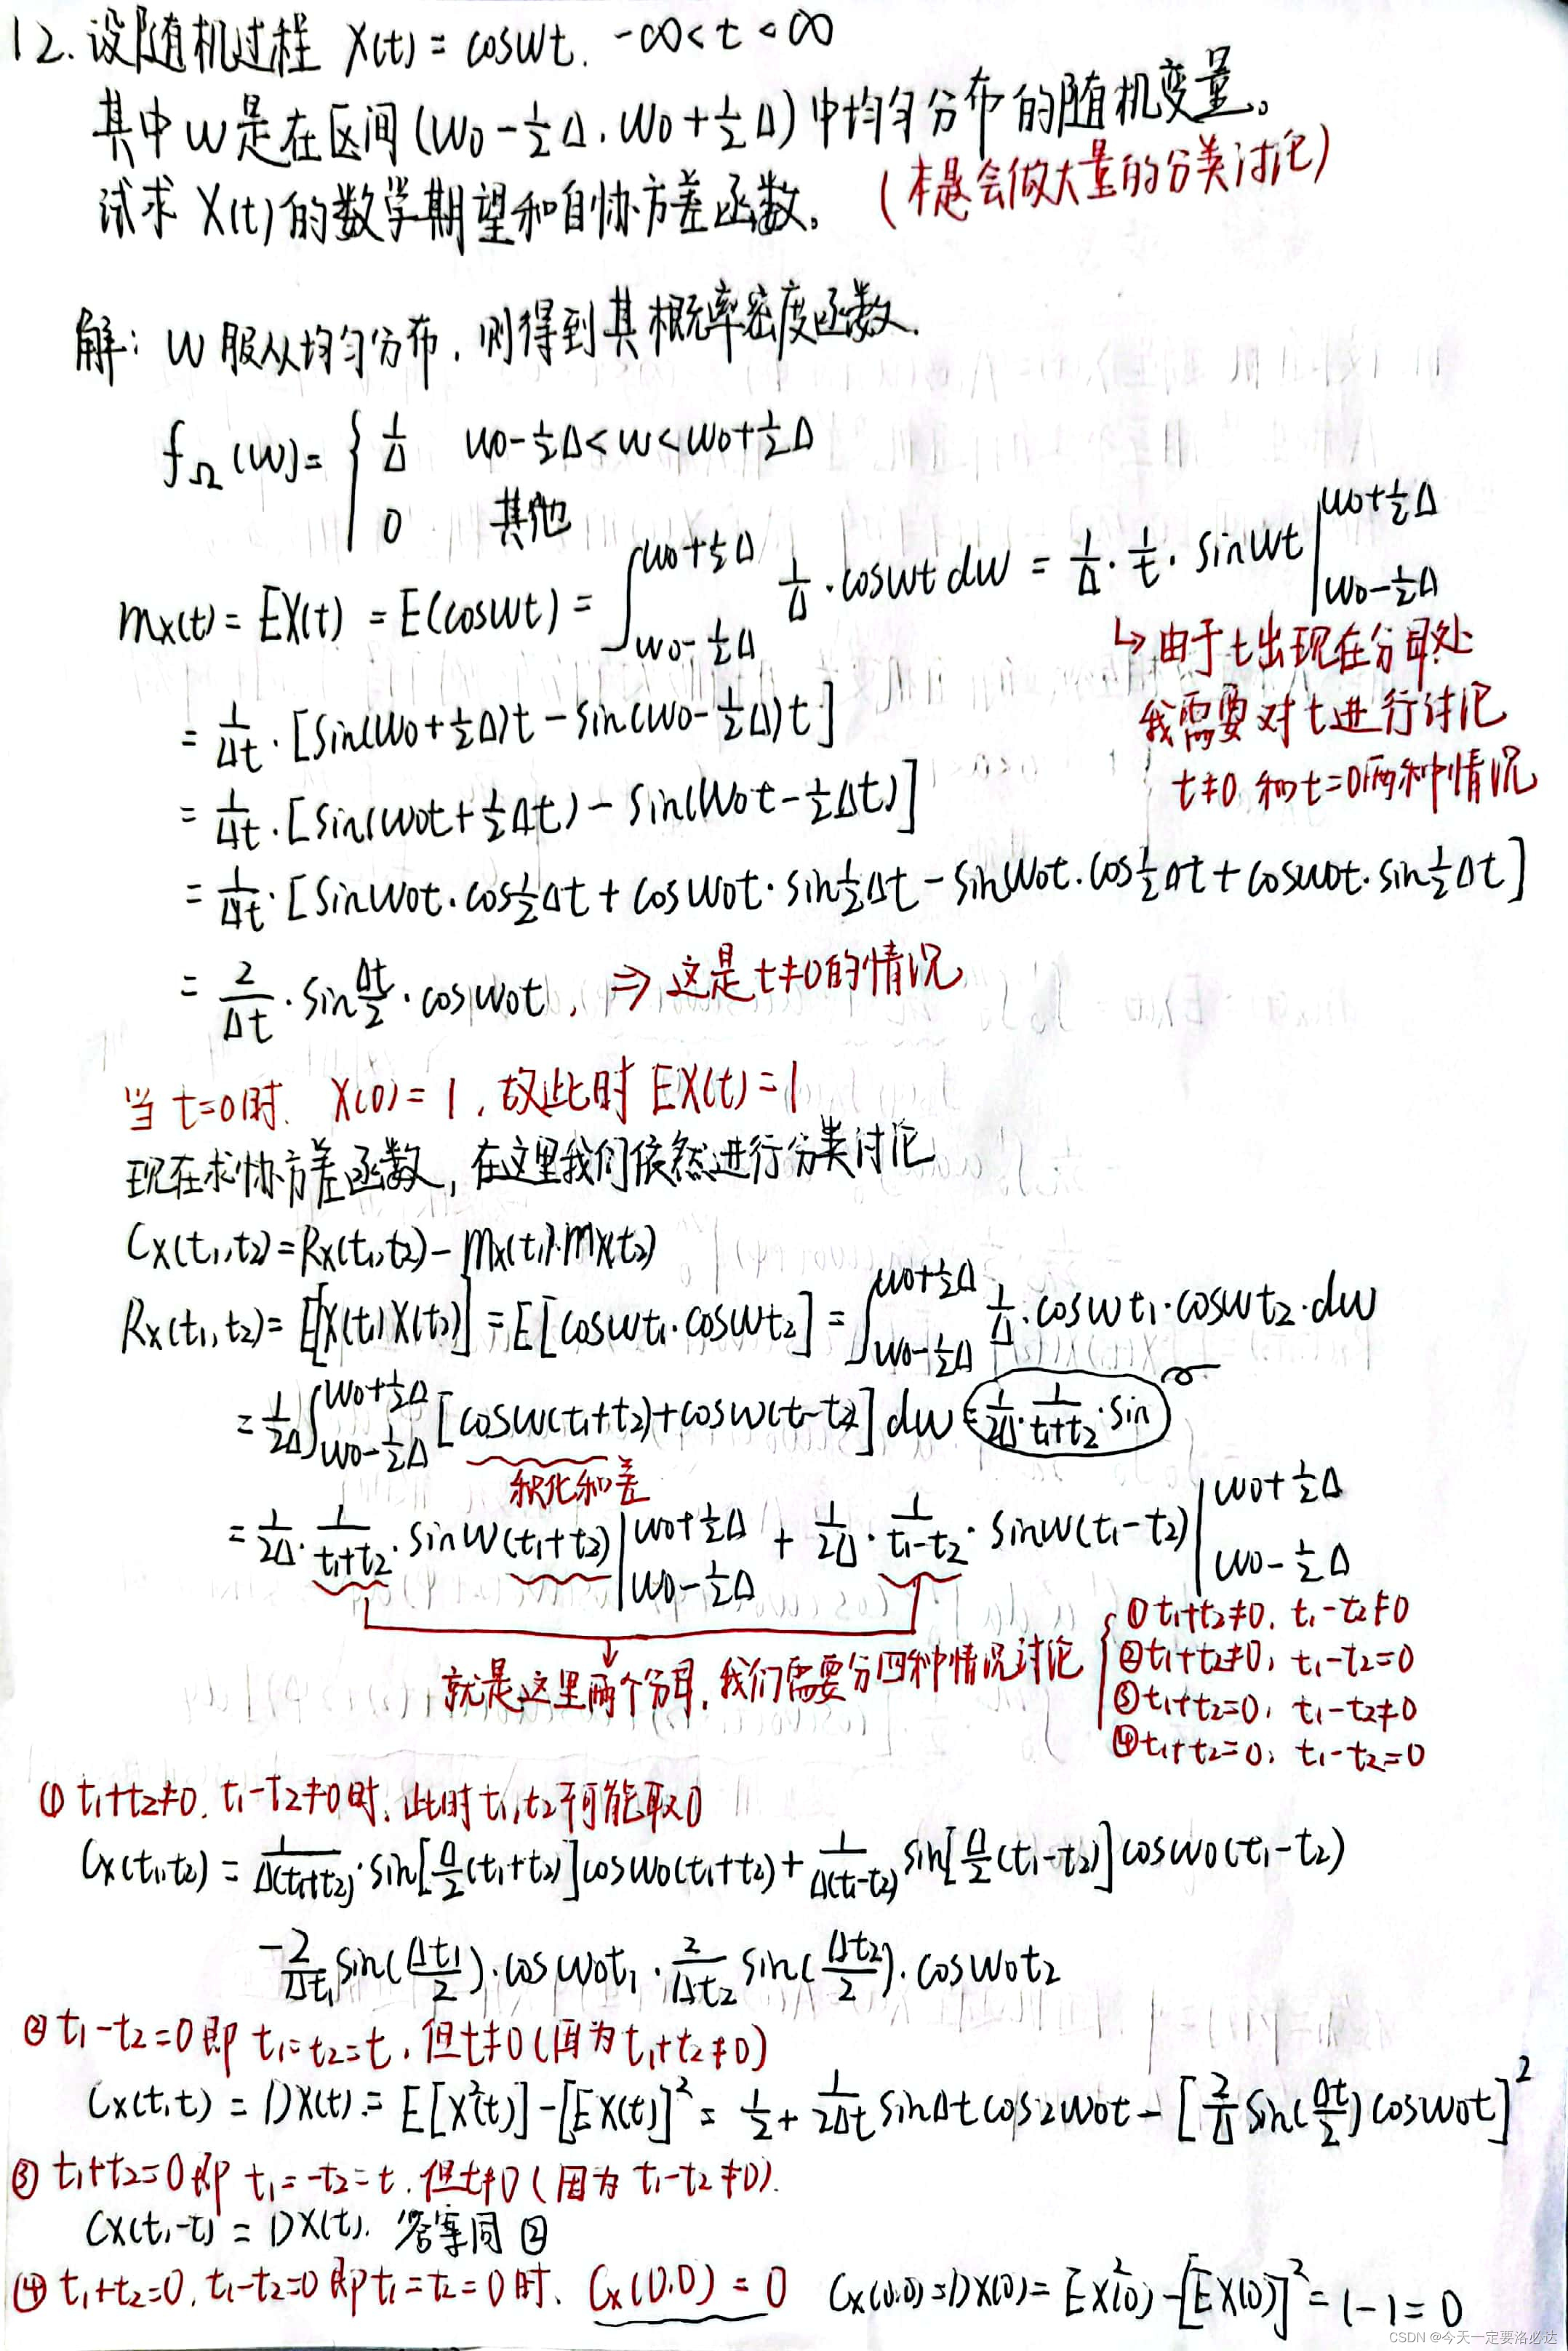 12. 设随机过程 X(t) = coswt. -∞<t<∞
其中w是在区间(w0-½Δ, w0+½Δ)中均匀分布的随机变量。
试求X(t)的数学期望和自协方差函数。(本题会做大量的分类讨论)
解: W服从均匀分布, 则得到其概率密度函数.
fΩ(w)= { 1/Δ w0-½Δ<w<w0+½Δ
0 其他
mx(t)= EX(t) = E(coswt) = ∫_{w0-½Δ}^{w0+½Δ} 1/Δ·coswt dw = 1/Δ·1/t·sinwt |_{w0-½Δ}^{w0+½Δ}
↳ 由于t出现在分母处
我需要对t进行讨论
t≠0 和t=0两种情况
= 1/Δt·[sin(w0+½Δ)t-sin(w0-½Δ)t]
= 1/Δt·[sin(w0t+½Δt)-sin(w0t-½Δt)]
= 1/Δt·[sinw0t·cos½Δt+cosw0t·sin½Δt-sinw0t·cos½Δt+cosw0t·sin½Δt]
= 2/Δt·sin Δt/2·cosw0t, ⇒ 这是t≠0的情况
当t=0时. X(0)=1, 故此时EX(t)=1
现在求协方差函数, 在这里我们依然进行分类讨论
Cx(t1,t2)=Rx(t1,t2)-mx(t1)·mx(t2)
Rx(t1,t2)= E[X(t1)X(t2)] = E[coswt1·coswt2] = ∫_{w0-½Δ}^{w0+½Δ} 1/Δ·coswt1·coswt2·dw
= 1/2Δ ∫_{w0-½Δ}^{w0+½Δ} [cosw(t1+t2)+cosw(t1-t2)] dw = 1/2Δ·1/(t1+t2)·sin
积化和差
= 1/2Δ·1/(t1+t2)·sinw(t1+t2) |_{w0-½Δ}^{w0+½Δ} + 1/2Δ·1/(t1-t2)·sinw(t1-t2) |_{w0-½Δ}^{w0+½Δ}
就是这里两个分母, 我们需要分四种情况讨论
①t1+t2≠0, t1-t2≠0
②t1+t2≠0, t1-t2=0
③t1+t2=0, t1-t2≠0
④t1+t2=0, t1-t2=0
① t1+t2≠0, t1-t2≠0时, 此时t1,t2不可能取0
Cx(t1,t2) = 1/Δ(t1+t2)·sin[Δ/2(t1+t2)]cosw0(t1+t2)+1/Δ(t1-t2) sin[Δ/2(t1-t2)]cosw0(t1-t2)
-2/Δt1 sin(Δt1/2)·cosw0t1·2/Δt2 sin(Δt2/2)·cosw0t2
② t1-t2=0即t1=t2=t, 但t≠0(因为t1+t2≠0)
Cx(t,t) = DX(t) = E[X²(t)]-[EX(t)]² = ½+1/2Δt sinΔt cos2w0t-[2/Δ sin(Δt/2)cosw0t]²
③ t1+t2=0即t1=-t2=t, 但t≠0(因为t1-t2≠0).
Cx(t,-t) = DX(t). 答案同②
④ t1+t2=0, t1-t2=0即t1=t2=0时, Cx(0,0)=0 Cx(0,0)=DX(0)=EX²(0)-[EX(0)]²=1-1=0
CSDN @今天一定要洛必达